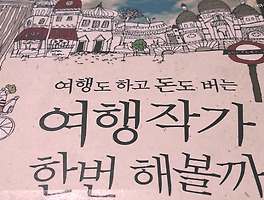 여행도 하고 돈도 버는
여행작가
한번 해볼까